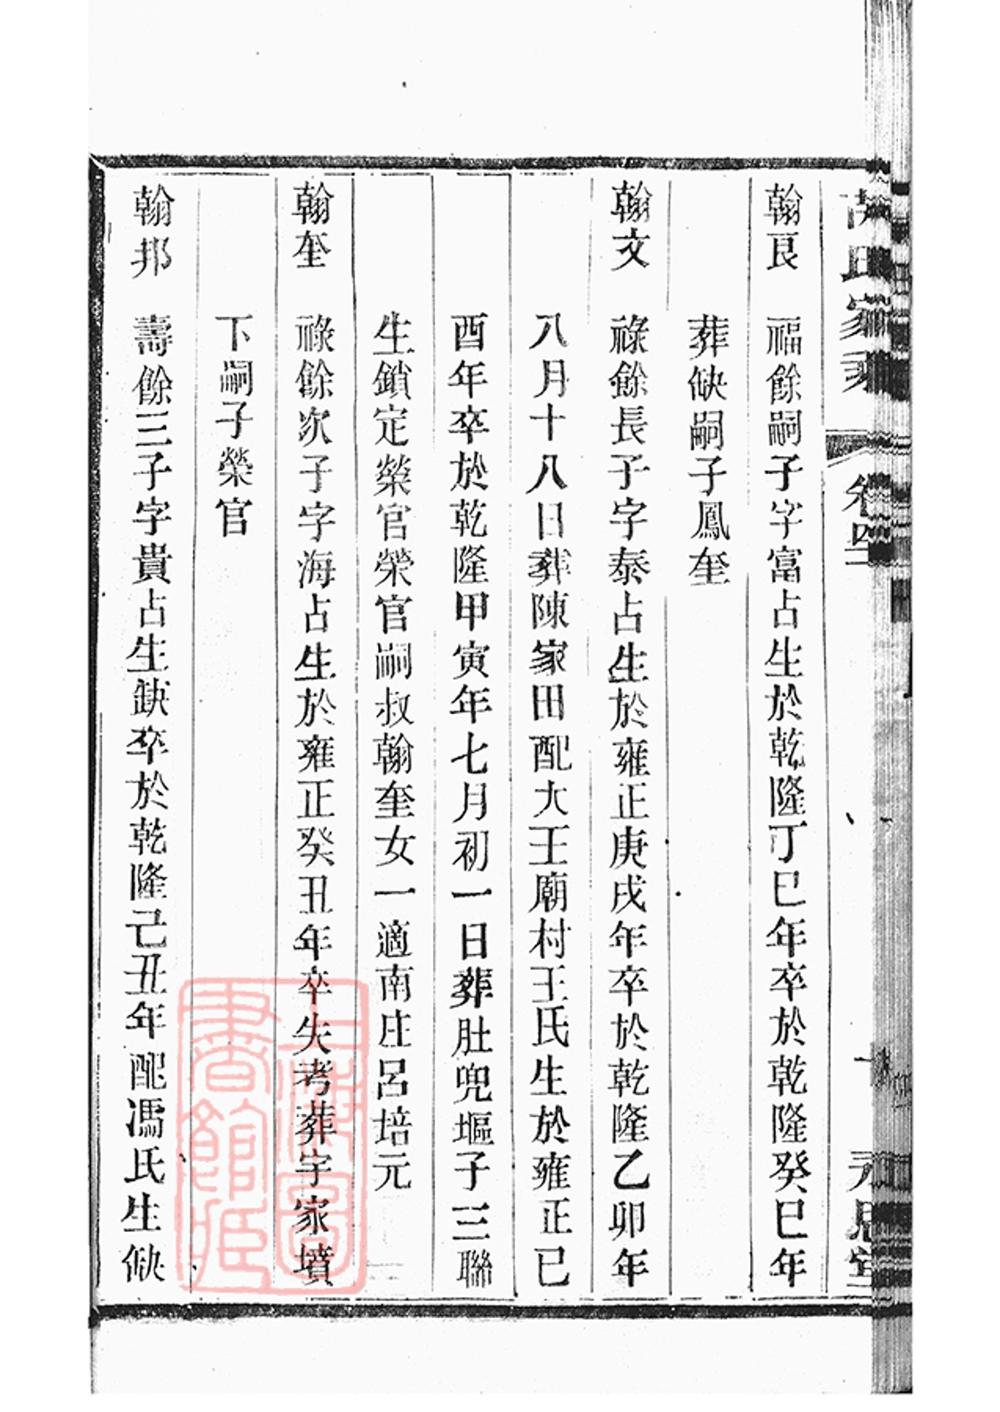 氏家乘 卷四 十 永思堂
翰良 福餘嗣子字富占生於乾隆丁巳年卒於乾隆癸巳年
葬缺嗣子鳳奎
翰文 祿餘長子字泰占生於雍正庚戌年卒於乾隆乙卯年
八月十八日葬陳家田配大王廟村王氏生於雍正已
酉年卒於乾隆甲寅年七月初一日葬肚兜塸子三聯
生鎖定榮官榮官嗣叔翰奎女一適南庄呂培元
翰奎 祿餘次子字海占生於雍正癸丑年卒失考葬宇家墳
下嗣子榮官
翰邦 壽餘三子字貴占生缺卒於乾隆己丑年配馮氏生缺
上海圖書館藏